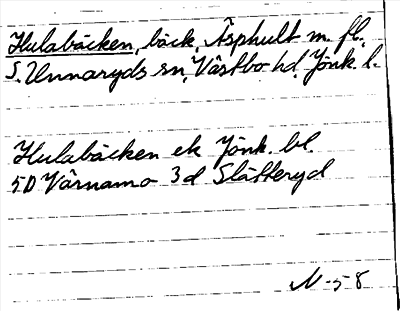 Hulabäcken, bäck, Äsphult m. fl.
S. Unnaryds sn, Västbo hd, Jönk. l.
Hulabäcken ek Jönk. bl.
5D Värnamo 3d Slätteryd
N-58